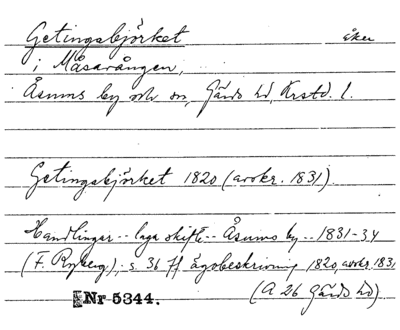 Getingsbjörket åker
i Måsavången,
Åsums by och sn, Gärds hd, Krstd. l.
Getingsbjörket 1820 (avskr. 1831)
Handlingar .. laga skifte .. Åsums by .. 1831-34
(F. Ryberg), s. 36 ff ägobeskrivning 1820, avskr. 1831
(A 26 Gärds hd)
Nr 5344.